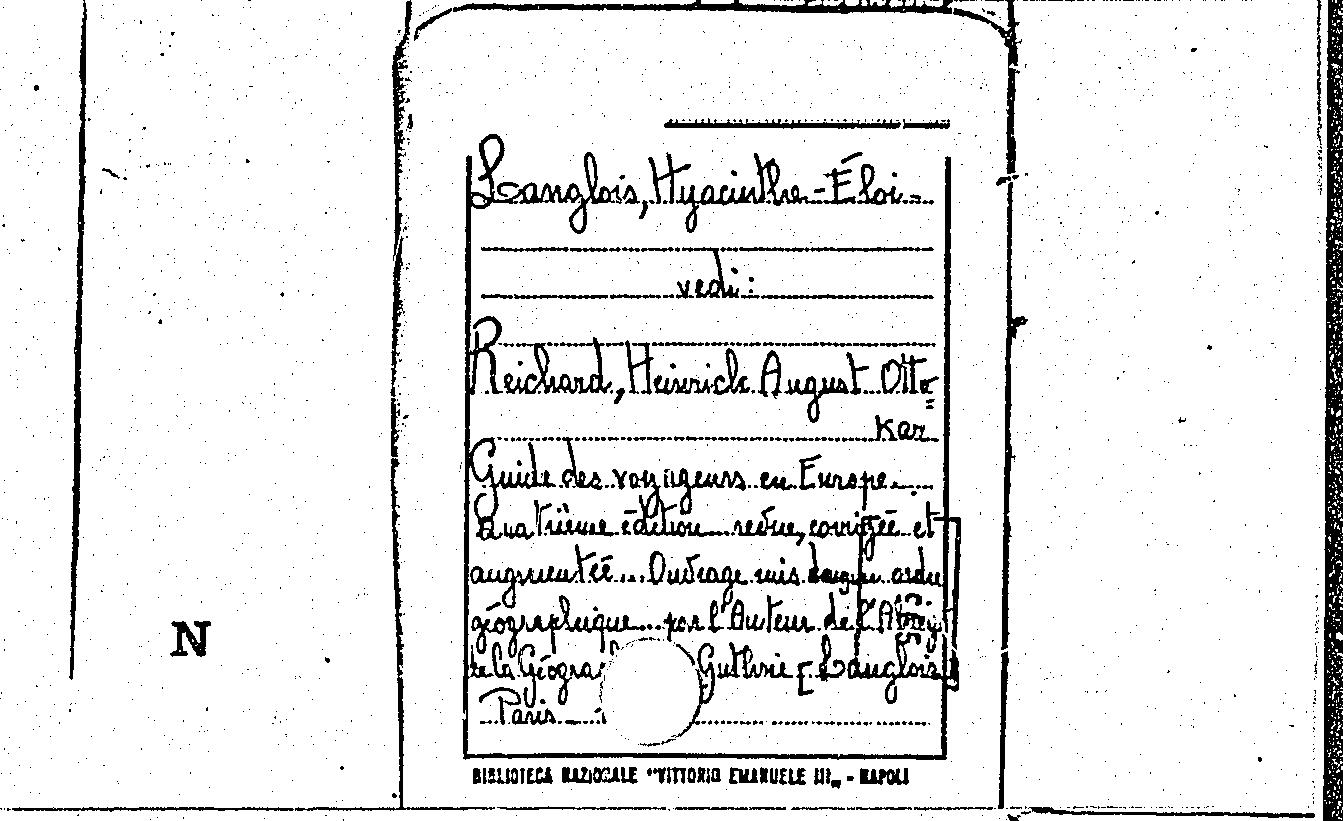 Langlois, Hyacinthe-Éloi-
vedi:
Reichard, Heinrich August Otto=
Kar
Guide des voyageurs en Europe...
Quatrième édition... revûe, corrigée et
augmentée... Ouvrage mis dans un ordre
géographique... par l'Auteur de l'Abrég
de la Géogra Guthrie [Langlois]
Paris
N
BIBLIOTECA NAZIONALE "VITTORIO EMANUELE III„ - NAPOLI